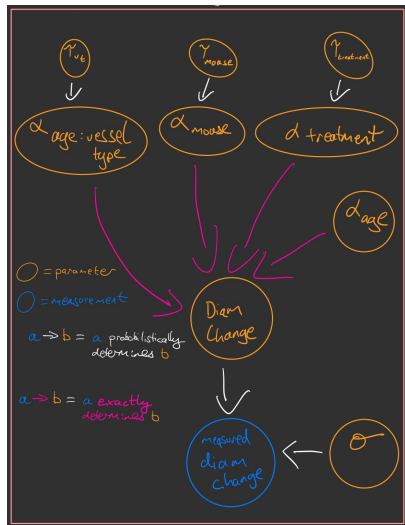 τvt
τmouse
τtreatment
α age:vessel
type
α mouse
α treatment
α age
○ = parameter
○ = measurement
a → b = a probabilistically
determines b
a → b = a exactly
determines b
Diam
Change
measured
diam
change
σ